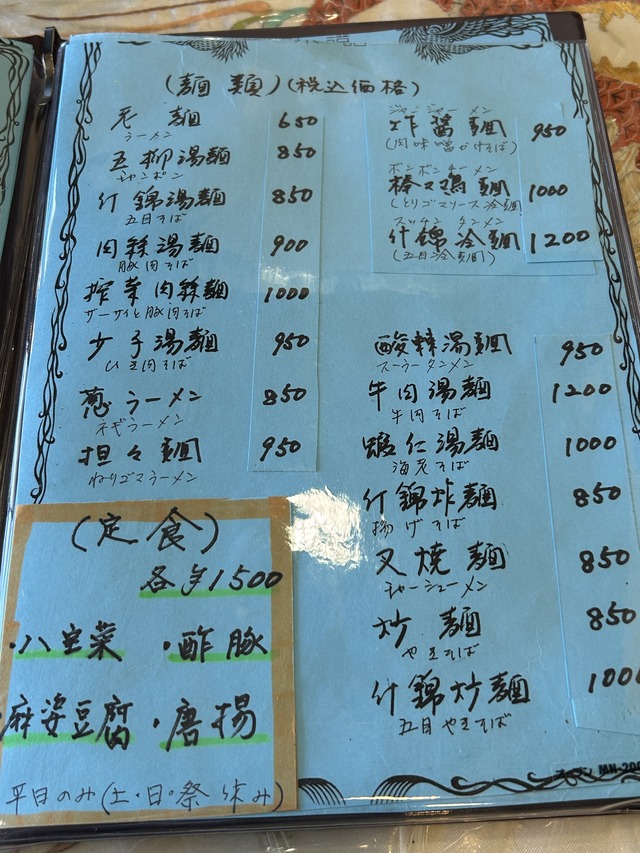 (麺類)(税込価格)
毛麺 650
ラーメン
五柳湯麺 850
チャンポン
什錦湯麺 850
五目そば
肉絲湯麺 900
豚肉そば
搾菜肉絲麺 1000
ザーサイと豚肉そば
少子湯麺 950
ひき肉そば
葱ラーメン 850
ネギラーメン
担々麺 950
ねりゴマラーメン
(定食)
各¥1500
・八宝菜 ・酢豚
・麻婆豆腐 ・唐揚
平日のみ(土・日・祭 休み)
ジャンジャーメン
炸醤麺 950
(肉味噌かけそば)
ボンボンチーメン
棒々鶏麺 1000
(とりゴマソース冷麺
什錦冷麺 1200
(五目冷麺)
酸辣湯麺 950
スーラータンメン
牛肉湯麺 1200
牛肉そば
蝦仁湯麺 1000
海老そば
什錦炸麺 850
揚げそば
叉焼麺 850
チャーシューメン
炒麺 850
やきそば
什錦炒麺 1000
五目やきそば